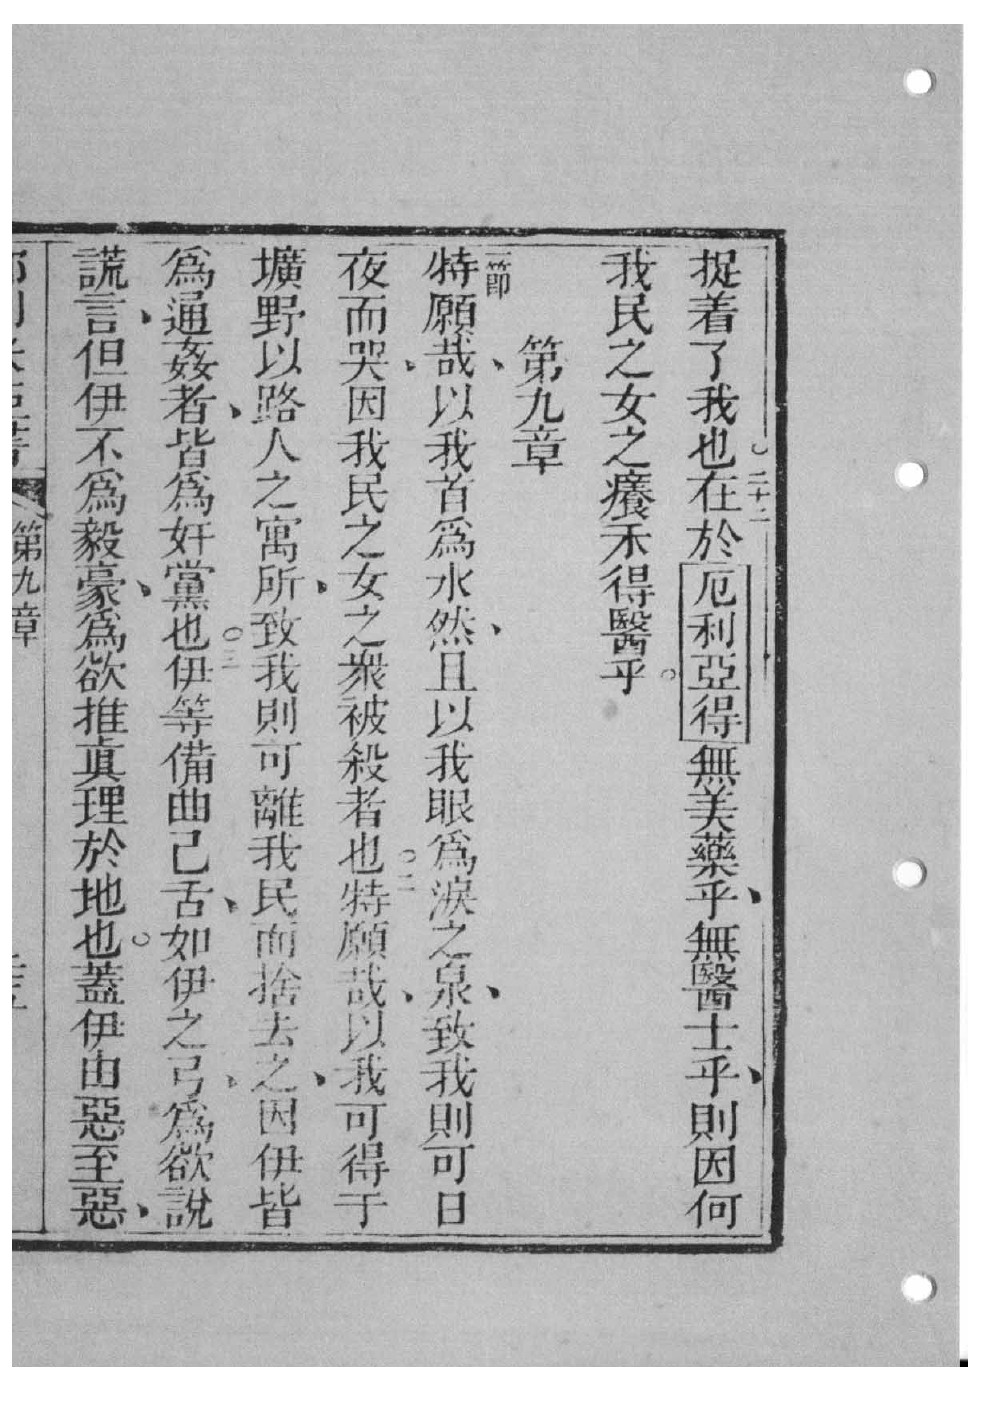 捉着了我也○二十二在於厄利亞得無美藥乎、無醫士乎、則因何
我民之女之癢未得醫乎○
第九章
一節特願哉、以我首爲水然、且以我眼爲淚之泉、致我則可日
夜而哭、因我民之女之衆被殺者也○二特願哉、以我可得于
壙野以路人之寓所、致我則可離我民而捨去之、因伊皆
爲通姦者、皆爲奸黨也○三伊等備曲己舌、如伊之弓、爲欲說
謊言、但伊不爲毅豪、爲欲推眞理於地也○蓋伊由惡至惡、
第九章